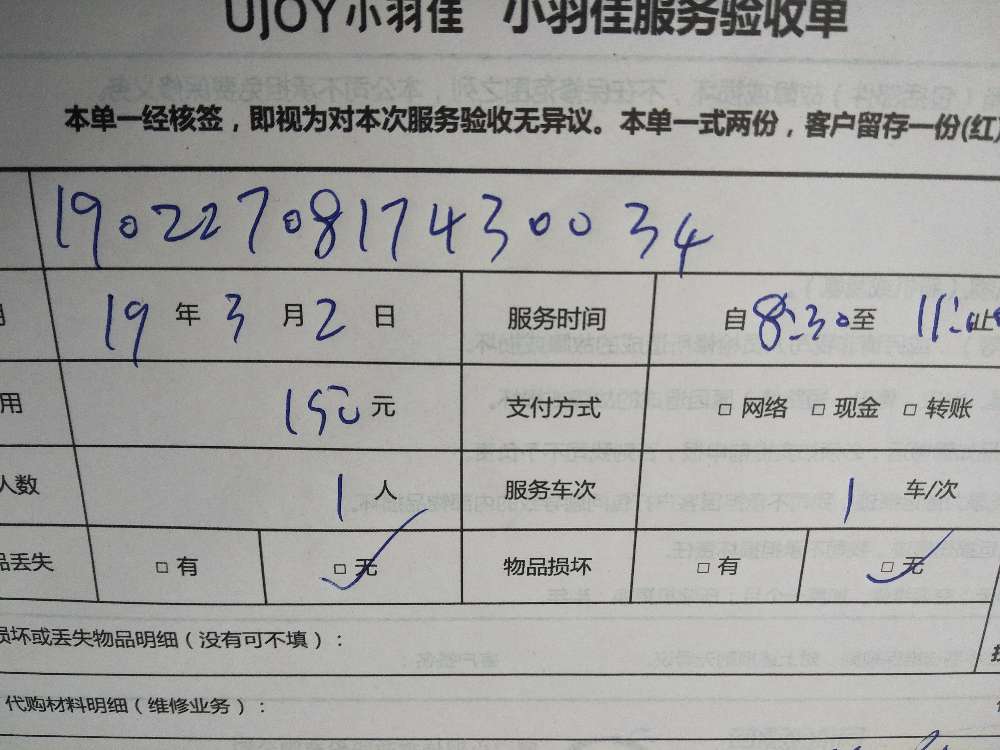 UJOY小羽佳 小羽佳服务验收单
本单一经核签，即视为对本次服务验收无异议。本单一式两份，客户留存一份(红)
190227081743 00 34
19 年 3 月 2 日 服务时间 自 8:30 至 11: 止
用 150 元 支付方式 □ 网络 □ 现金 □ 转账
人数 1 人 服务车次 1 车/次
品丢失 □ 有 □ 无 物品损坏 □ 有 □ 无
损坏或丢失物品明细（没有可不填）：
代购材料明细（维修业务）：